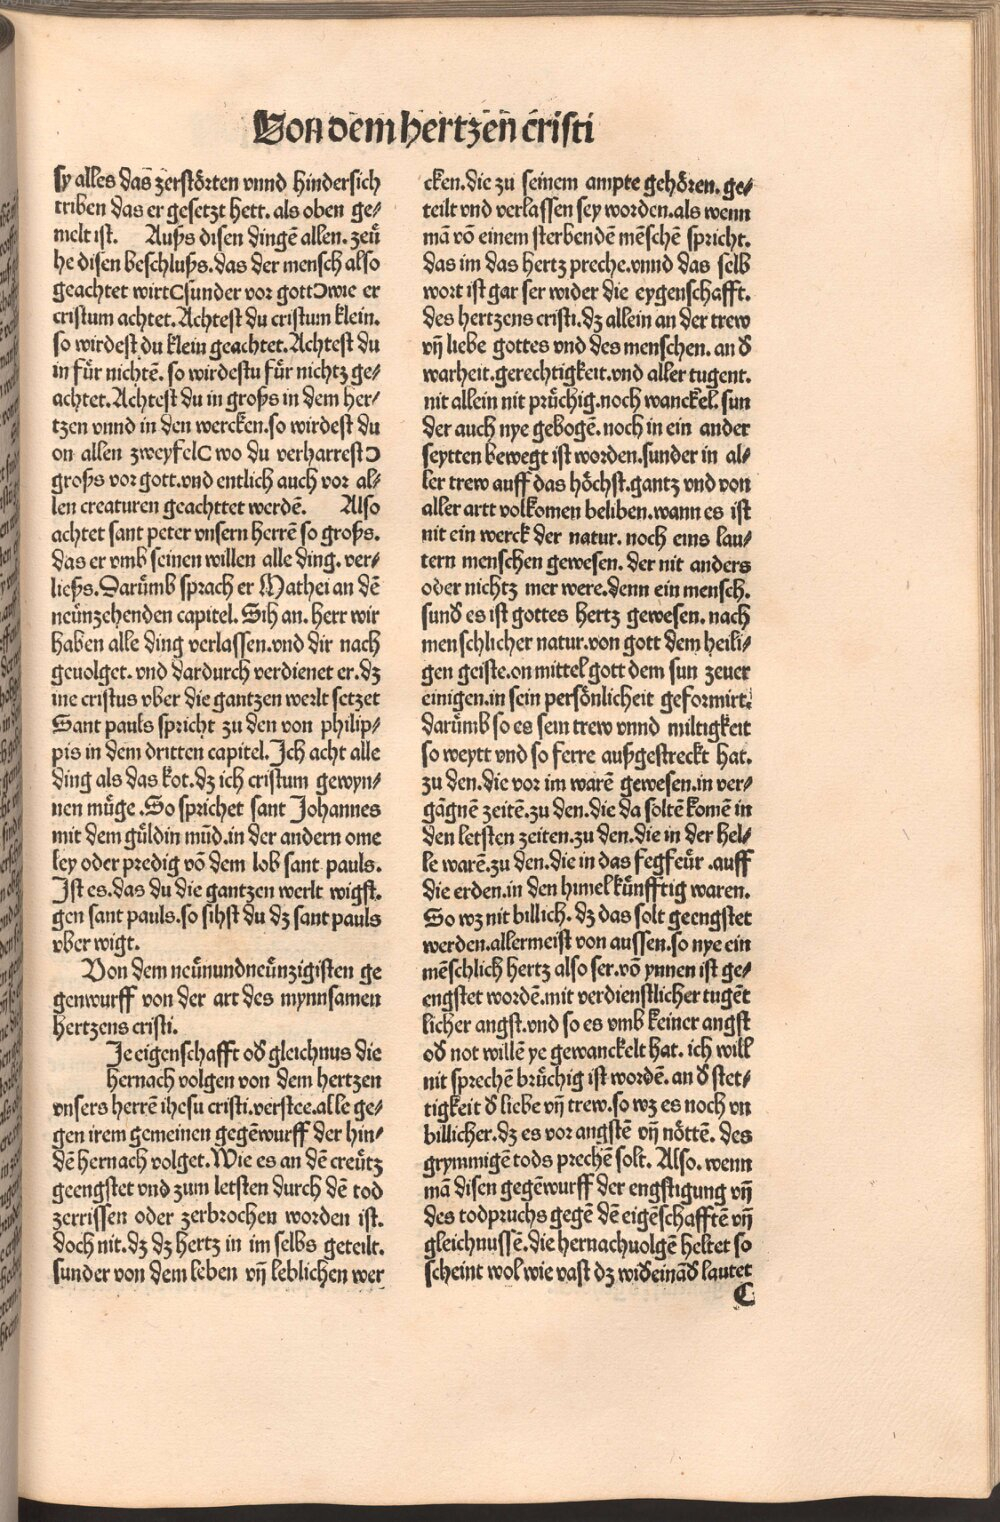 Von dem hertzen cristi
sy alles das zerstörten vnnd hindersich
triben das er gesetzt hett. als oben ge⸗
melt ist. Auſßs disen dingē allen. zeü
he disen beschlußs. das der mensch also
geachtet wirt(sunder vor gott)wie er
cristum achtet. Achtest du cristum klein.
so wirdest du klein geachtet. Achtest du
in für nichtē. so wirdestu für nichtz ge⸗
achtet. Achtest du in großs in dem her⸗
tzen vnnd in den wercken. so wirdest du
on allen zweyfel( wo du verharrest)
großs vor gott. vnd entlich auch vor al⸗
len creaturen geachttet werdē. Also
achtet sant peter vnsern herrē so großs.
das er vmb seinen willen alle ding. ver⸗
ließs. Darümb sprach er Mathei an dē
neünzehenden capitel. Sih an. herr wir
haben alle ding verlassen. vnd dir nach
geuolget. vnd dardurch verdienet er. dz
ine cristus vber die gantzen werlt setzet
Sant pauls spricht zu den von philip⸗
pis in dem dritten capitel. Ich acht alle
ding als das kot. dz ich cristum gewyn⸗
nen müge. So sprichet sant Johannes
mit dem güldin mūd. in der andern ome
ley oder predig vō dem lob sant pauls.
Ist es. das du die gantzen werlt wigst.
gen sant pauls. so sihst du dz sant pauls
vber wigt.
Von dem neünundneünzigisten ge
genwurff von der art des mynnsamen
hertzens cristi.
Je eigenschafft od̄ gleichnus die
hernach volgen von dem hertzen
vnsers herrē ihesu cristi. verstee. alle ge⸗
gen irem gemeinen gegēwurff der hin⸗
dē hernach volget. Wie es an dē creütz
geengstet vnd zum letsten durch dē tod
zerrissen oder zerbrochen worden ist.
doch nit. dz dz hertz in im selbs geteilt.
sunder von dem leben vn̄ leblichen wer
cken. die zu seinem ampte gehören. ge⸗
teilt vnd verlassen sey worden. als wenn
mā vō einem sterbendē mēschē spricht.
das im das hertz preche. vnnd das selb
wort ist gar ser wider die eygenschafft.
des hertzens cristi. dz allein an der trew
vn̄ liebe gottes vnd des menschen. an d̄
warheit. gerechtigkeit. vnd aller tugent.
nit allein nit prüchig. noch wanckel. sun
der auch nye gebogē. noch in ein ander
seytten bewegt ist worden. sunder in al⸗
ler trew auff das höchst. gantz vnd von
aller artt volkomen beliben. wann es ist
nit ein werck der natur. noch eins lau⸗
tern menschen gewesen. der nit anders
oder nichtz mer were. denn ein mensch.
sund̄ es ist gottes hertz gewesen. nach
menschlicher natur. von gott dem heili⸗
gen geiste. on mittel gott dem sun zeuer
einigen. in sein persönlicheit geformirt.
darümb so es sein trew vnnd miltigkeit
so weytt vnd so ferre außgestreckt hat.
zu den. die vor im warē gewesen. in ver⸗
gāgnē zeitē. zu den. die da soltē komē in
den letsten zeiten. zu den. die in der hel⸗
le warē. zu den. die in das fegfeür. auff
die erden. in den himel künfftig waren.
So wz nit billich. dz das solt geengstet
werden. allermeist von aussen. so nye ein
mēschlich hertz also ser. vō ynnen ist ge⸗
engstet wordē. mit verdienstlicher tugēt
licher angst. vnd so es vmb keiner angst
od̄ not willē ye gewanckelt hat. ich will
nit sprechē brüchig ist wordē. an d̄ stet⸗
tigkeit d̄ liebe vn̄ trew. so wz es noch vn
billicher. dz es vor angstē vn̄ nöttē. des
grymmigē tods prechē solt. Also. wenn
mā disen gegēwurff der engstigung vn̄
des todpruchs gegē dē eigēschafftē vn̄
gleichnussē. die hernachuolgē heltet so
scheint wol wie vast dz wid̄einād̄ lautet
C